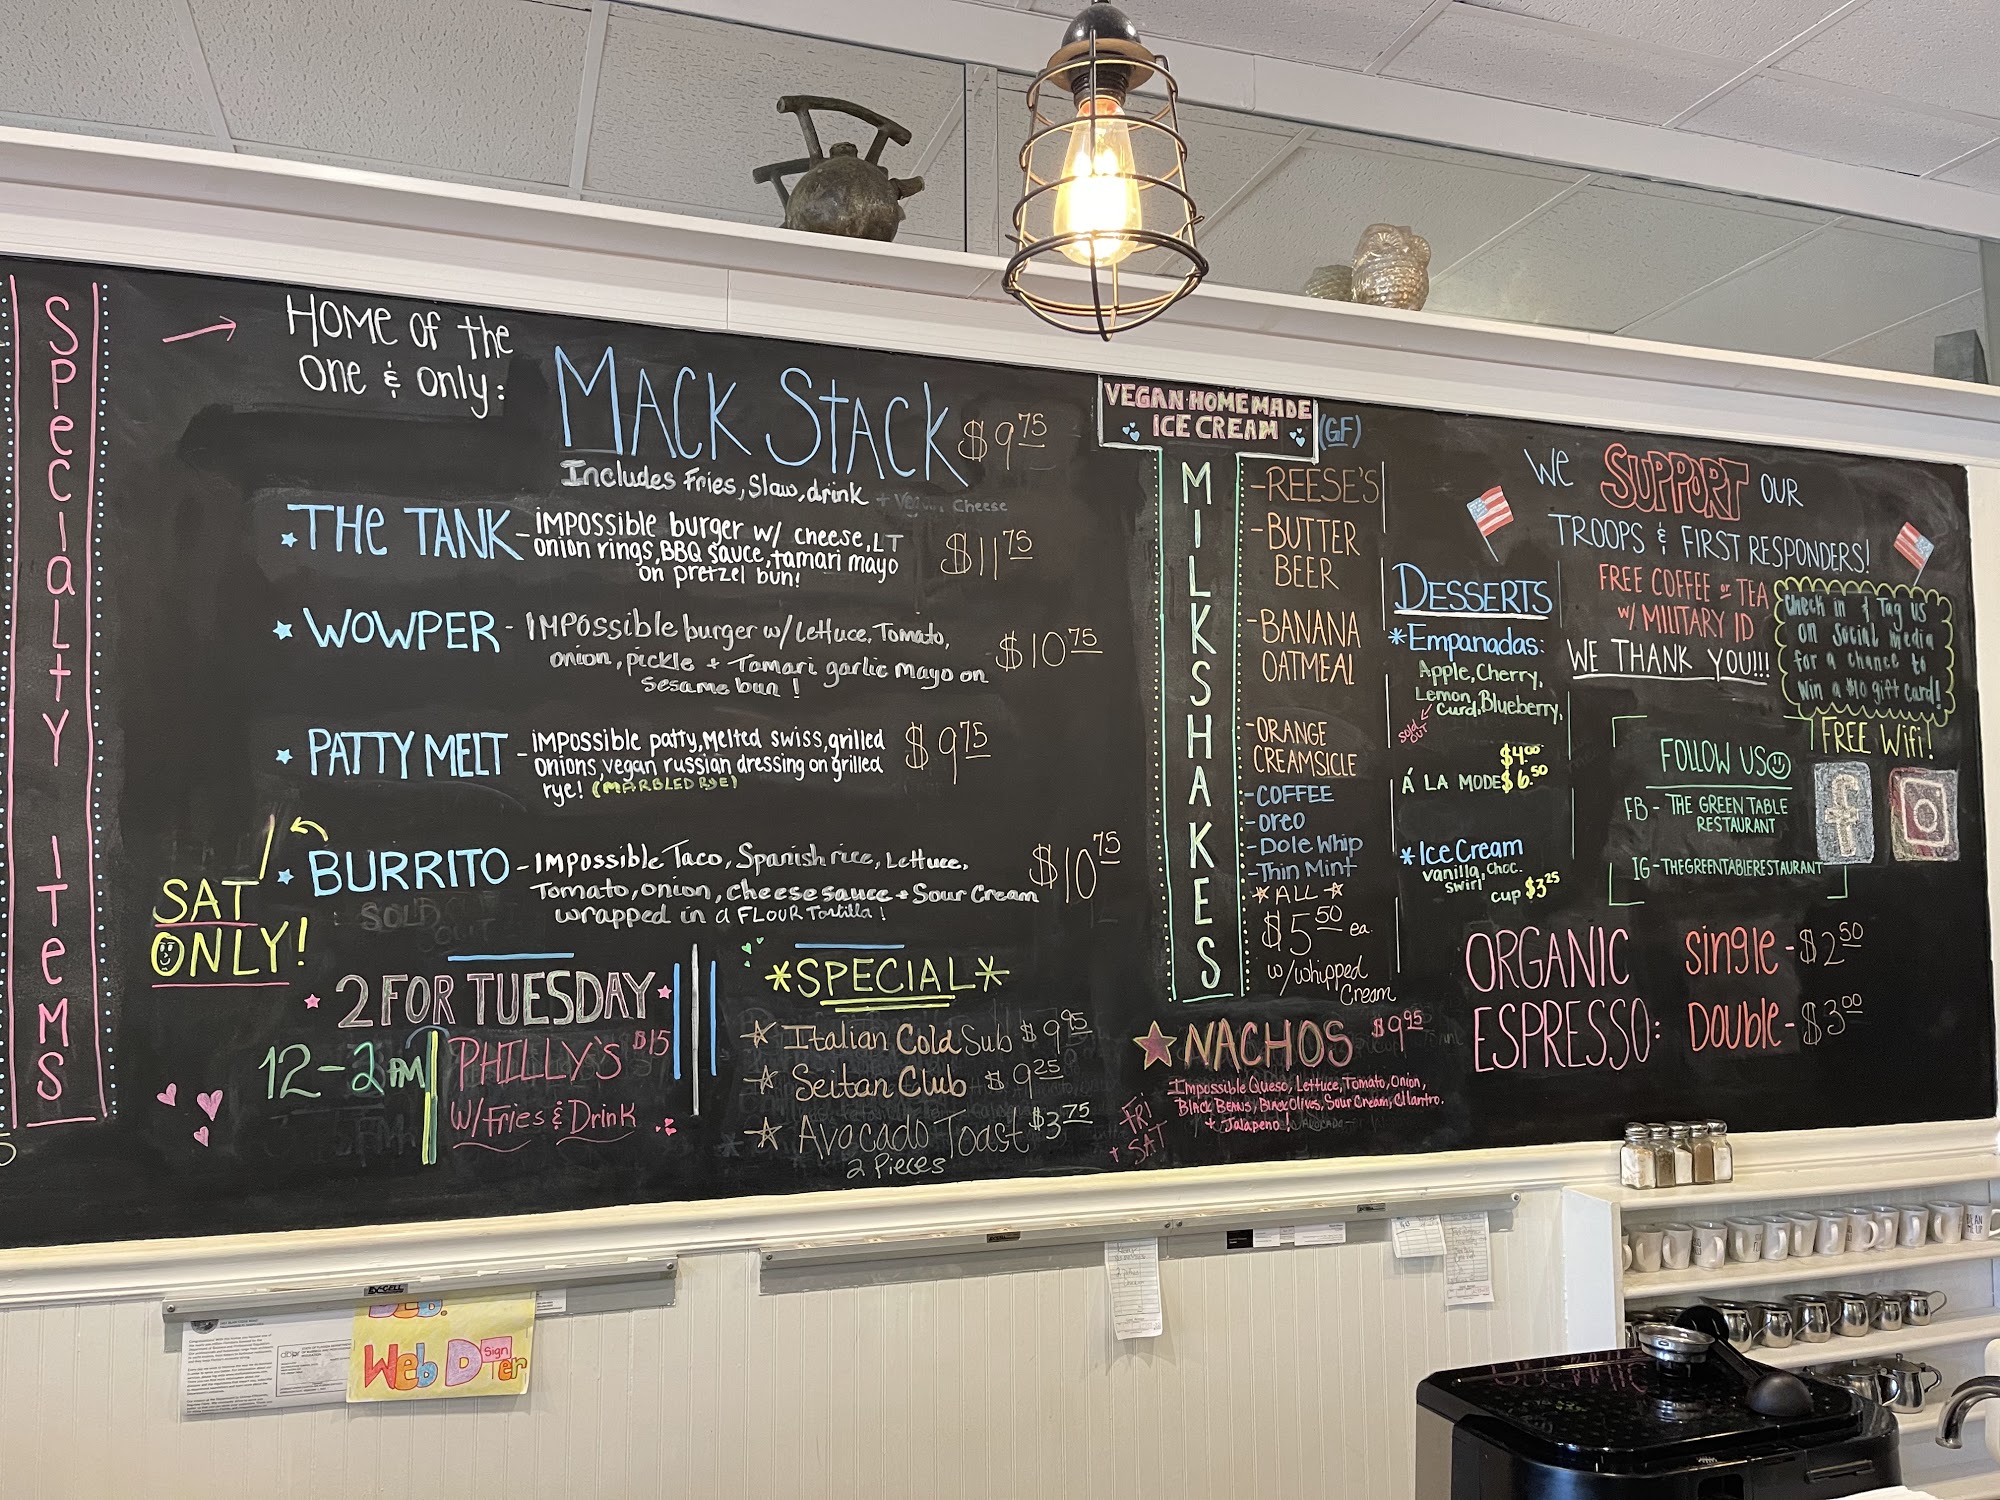 Specialty Items
Home of the
One & Only:
Mack Stack $9.75
Includes Fries, Slaw, drink + Vegan Cheese
The Tank - Impossible burger w/ cheese, LT
onion rings, BBQ sauce, tamari mayo
on pretzel bun!
$11.75
Wowper - Impossible burger w/ Lettuce, Tomato,
onion, pickle + Tamari garlic mayo on
Sesame bun!
$10.75
Patty Melt - Impossible patty, melted swiss, grilled
onions, vegan russian dressing on grilled
rye! (Marbled Rye)
$9.75
Burrito - Impossible Taco, Spanish rice, Lettuce,
Tomato, onion, cheese sauce + Sour Cream
wrapped in a Flour Tortilla!
$10.75
SAT
ONLY!
2 FOR TUESDAY
12-2PM
PHILLY'S $15
W/ Fries & Drink
*SPECIAL*
Italian Cold Sub $9.95
Seitan Club $9.25
Avocado Toast $3.75
2 Pieces
VEGAN HOMEMADE
ICE CREAM
(GF)
MILKSHAKES
-REESE'S
-BUTTER
BEER
-BANANA
OATMEAL
-ORANGE
CREAMSICLE
-COFFEE
-Oreo
-Dole Whip
-Thin Mint
ALL
$5.50 ea.
w/ whipped
Cream
NACHOS $9.95
Impossible Queso, Lettuce, Tomato, Onion,
Black Beans, Black Olives, Sour Cream, Cilantro.
+ Jalapeno!
FRI
+ SAT
DESSERTS
*Empanadas:
Apple, Cherry,
Lemon
Curd, Blueberry,
SOLD
OUT
$4.00
Á LA MODE $6.50
*Ice Cream
vanilla, choc.
swirl
cup $3.25
We SUPPORT OUR
TROOPS & FIRST RESPONDERS!
FREE COFFEE or TEA
w/ MILITARY ID
WE THANK YOU!!!
Check in & Tag us
on Social media
for a chance to
win a $10 gift card!
FREE Wifi!
FOLLOW US
FB - THE GREEN TABLE
RESTAURANT
IG - THEGREENTABLERESTAURANT
f
ORGANIC
ESPRESSO:
Single - $2.50
Double - $3.00
Web D
sign
er